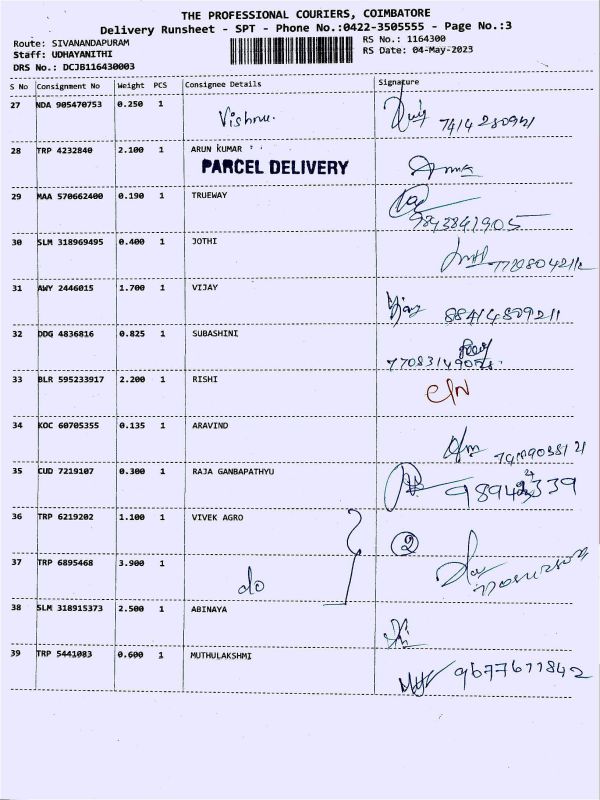 THE PROFESSIONAL COURIERS, COIMBATORE
Delivery Runsheet - SPT - Phone No.:0422-3505555 - Page No.:3
Route: SIVANANDAPURAM
RS No.: 1164300
Staff: UDHAYANITHI
RS Date: 04-May-2023
DRS No.: DCJB116430003
S No Consignment No Weight PCS Consignee Details Signature
27 NDA 905470753 0.250 1 Vishnu.
28 TRP 4232840 2.100 1 ARUN KUMAR
PARCEL DELIVERY
29 MAA 570662400 0.190 1 TRUEWAY
9843841905
30 SLM 318969495 0.400 1 JOTHI
31 AWY 2446015 1.700 1 VIJAY
88414809211
32 DDG 4836816 0.825 1 SUBASHINI
33 BLR 595233917 2.200 1 RISHI
34 KOC 60705355 0.135 1 ARAVIND
35 CUD 7219107 0.300 1 RAJA GANBAPATHYU
36 TRP 6219202 1.100 1 VIVEK AGRO 2
37 TRP 6895468 3.900 1 do
38 SLM 318915373 2.500 1 ABINAYA
39 TRP 5441083 0.600 1 MUTHULAKSHMI
9677611842